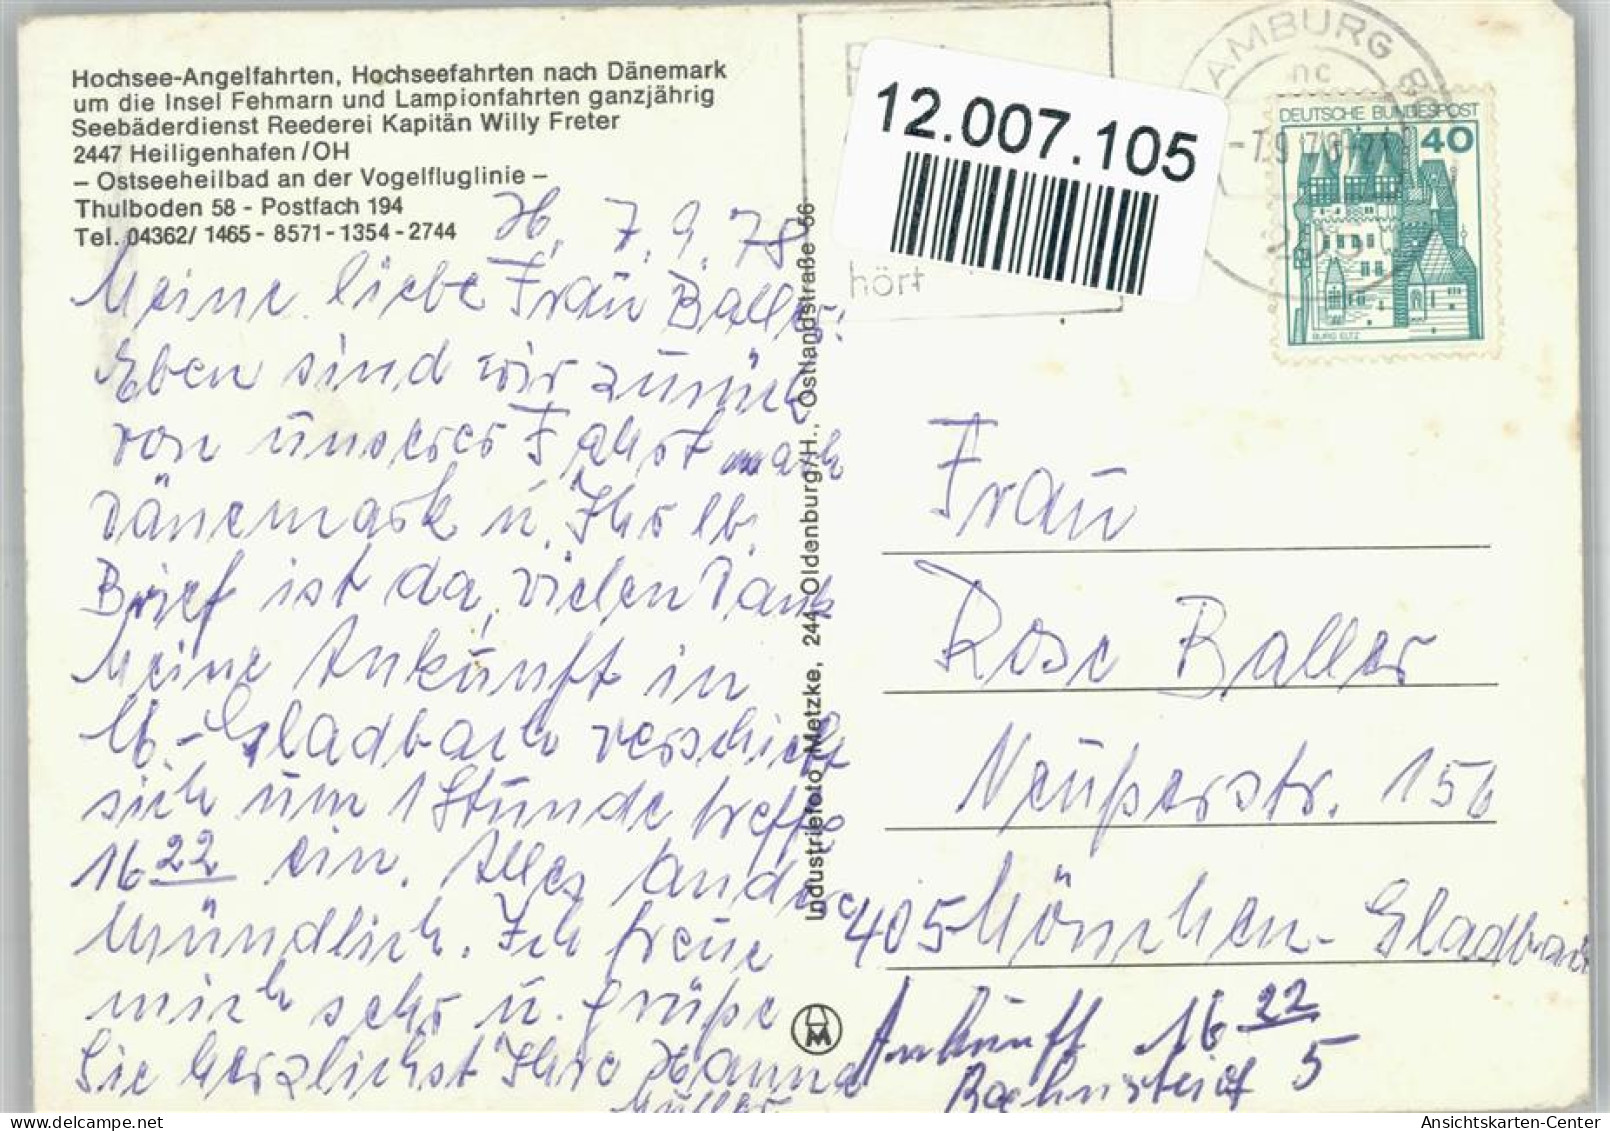 Hochsee-Angelfahrten, Hochseefahrten nach Dänemark
um die Insel Fehmarn und Lampionfahrten ganzjährig
Seebäderdienst Reederei Kapitän Willy Freter
2447 Heiligenhafen/OH
– Ostseeheilbad an der Vogelfluglinie –
Thulboden 58 - Postfach 194
Tel. 04362/ 1465 - 8571 - 1354 - 2744
H, 7.9.78
Meine liebe Frau Baller!
Eben sind wir zurück
von unserer Fahrt nach
Dänemark u. Ihr lb.
Brief ist da, vielen Dank
Meine Ankunft in
M.-Gladbach verschiebt
sich um 1 Stunde treffe
16 22 ein. Alles andere
Mündlich. Ich freue
mich sehr u. grüße
Sie herzlichst Ihre Hanna
Müller
Industriefoto Metzke, 244 Oldenburg/H., Ostlandstraße 56
hört
12.007.105
HAMBURG
DEUTSCHE BUNDESPOST
40
BURG ELTZ
Frau
Rose Baller
Neußerstr. 156
405 Mönchen-Gladbach
Ankunft 16 22
Bahnsteig 5
Ansichtskarten-Center